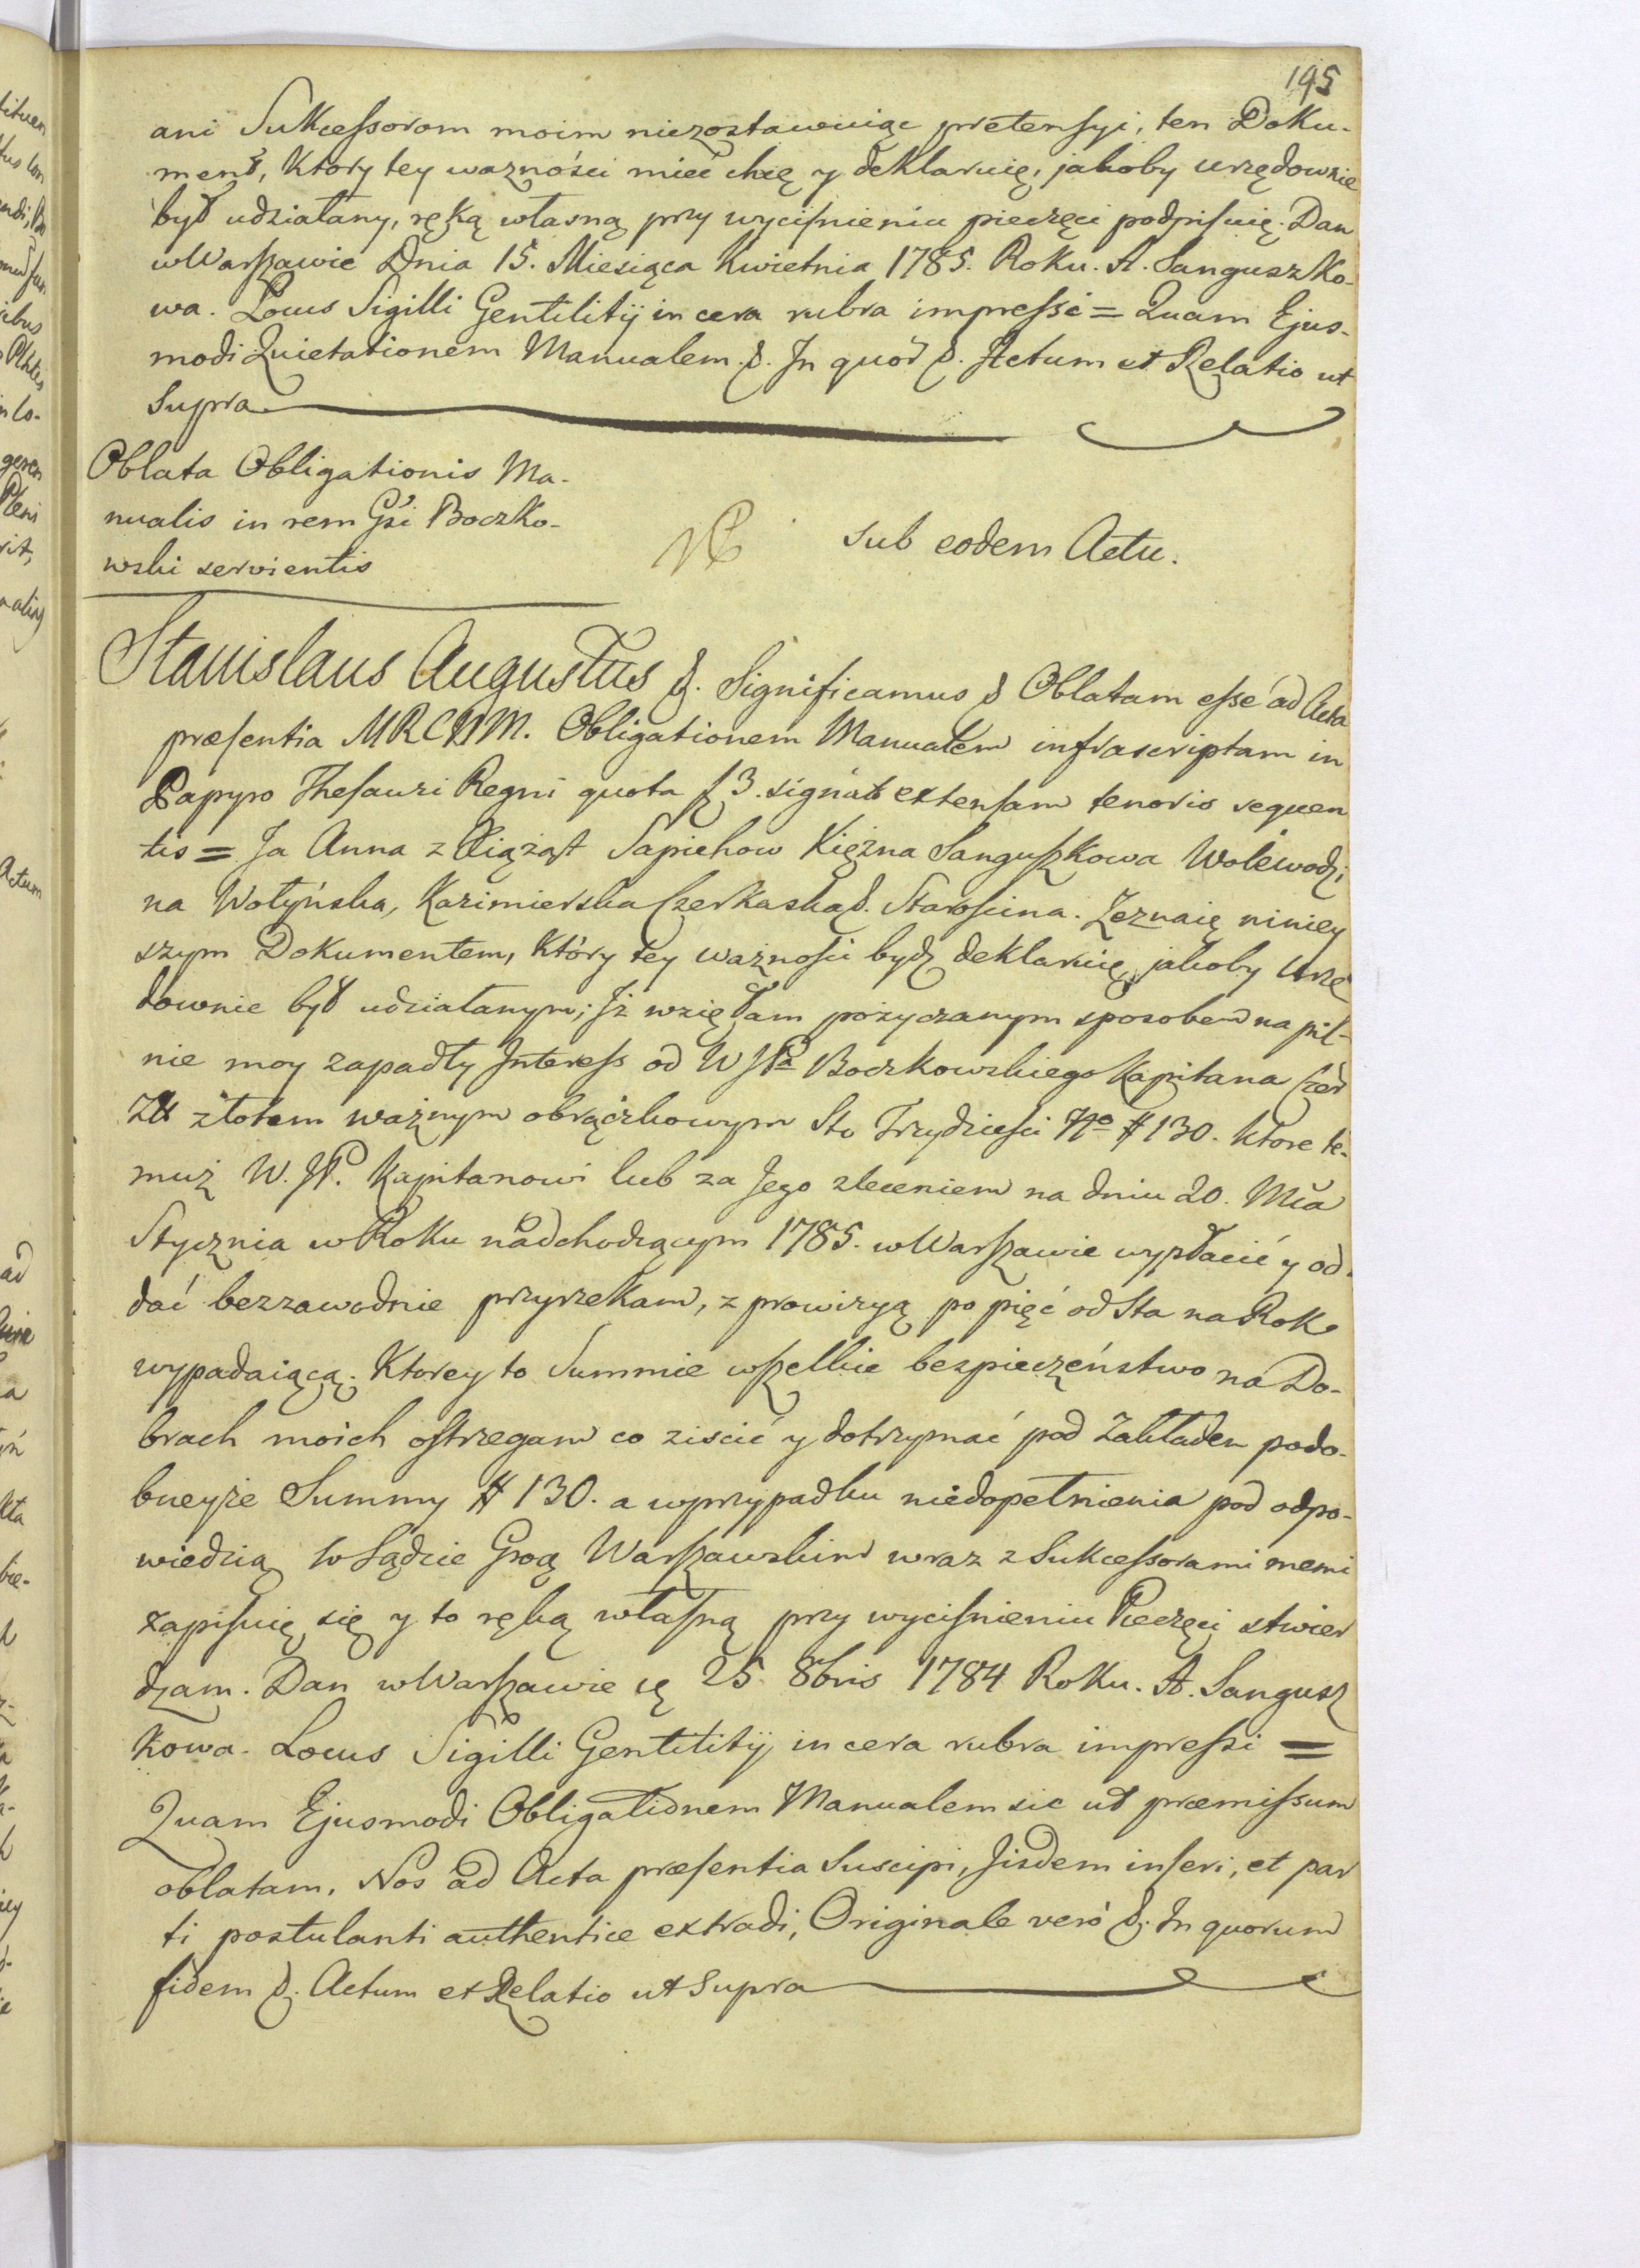 195
ani Sukcessorom moim niezostawuiąc pretensyi, ten Doku-
ment, Ktory tey wazności mieć chcę y deklaruię, jakoby urzędownie
był udziałany, ręką własną przy wycisnieniu pieczęci podpisuię. Dan
w Warszawie Dnia 15. Miesiąca Kwietnia 1785. Roku. A. Sanguszko-
wa. Locus Sigilli Gentilitij in cera rubra impressi = Quam Ejus-
modi Quietationem Manualem &. In quor &. Actum et Relatio ut
Supra
Oblata Obligationis Ma-
nualis in rem Gsi Boczko-
wski servientis
sub eodem Actu.
Stanislaus Augustus &. Significamus & Oblatam esse ad Acta
præsentia MRCNM. Obligationem Manualem infrascriptam in
Papyro Thesauri Regni quota f 3. signat extensam tenoris sequen
tis = Ja Anna z Xiążąt Sapiehow Xiężna Sanguszkowa Woiewodzi
na Wołyńska, Kazimierska Czerkaska &. Starościna. Zeznaię niniey
szym Dokumentem, Który tey ważności bydź deklaruię, jakoby Urzę
downie był udziałanym; Iż wzięłam pożyczanym sposobem na pil-
nie moy zapadły Interess od WJPa Boczkowskiego Kapitana Czer
Zł złotem ważnym obrączkowym Sto Trzydzieści No # 130. które te-
muż W. JP. Kapitanowi lub za Jego zleceniem na dniu 20. Mca
Stycznia w Roku nadchodzącym 1785. w Warszawie wypłacić y od-
dać bezzawodnie przyrzekam, z prowizyą po pięć od Sta na Rok
wypadaiącą. Ktorey to Summie wszelkie bezpieczeństwo na Do-
brach moich ostrzegam co ziscić y dotrzymać pod Zakładem podo-
bneyże Summy # 130. a w przypadku niedopełnienia pod odpo-
wiedzią w Sądzie Grog Warszawskim wraz z Sukcessorami memi
zapisuię się y to ręką własną przy wycisnieniu Pieczęci stwier
dzam. Dan w Warszawie 25. 8bris 1784 Roku. A. Sangusz
kowa. Locus Sigilli Gentilitij in cera rubra impressi =
Quam Ejusmodi Obligationem Manualem sic ut præmissum
oblatam, Nos ad Acta præsentia Suscipi, Iisdem inseri, et par
ti postulanti authentice extradi, Originale vero &. In quorum
fidem &. Actum et Relatio ut Supra